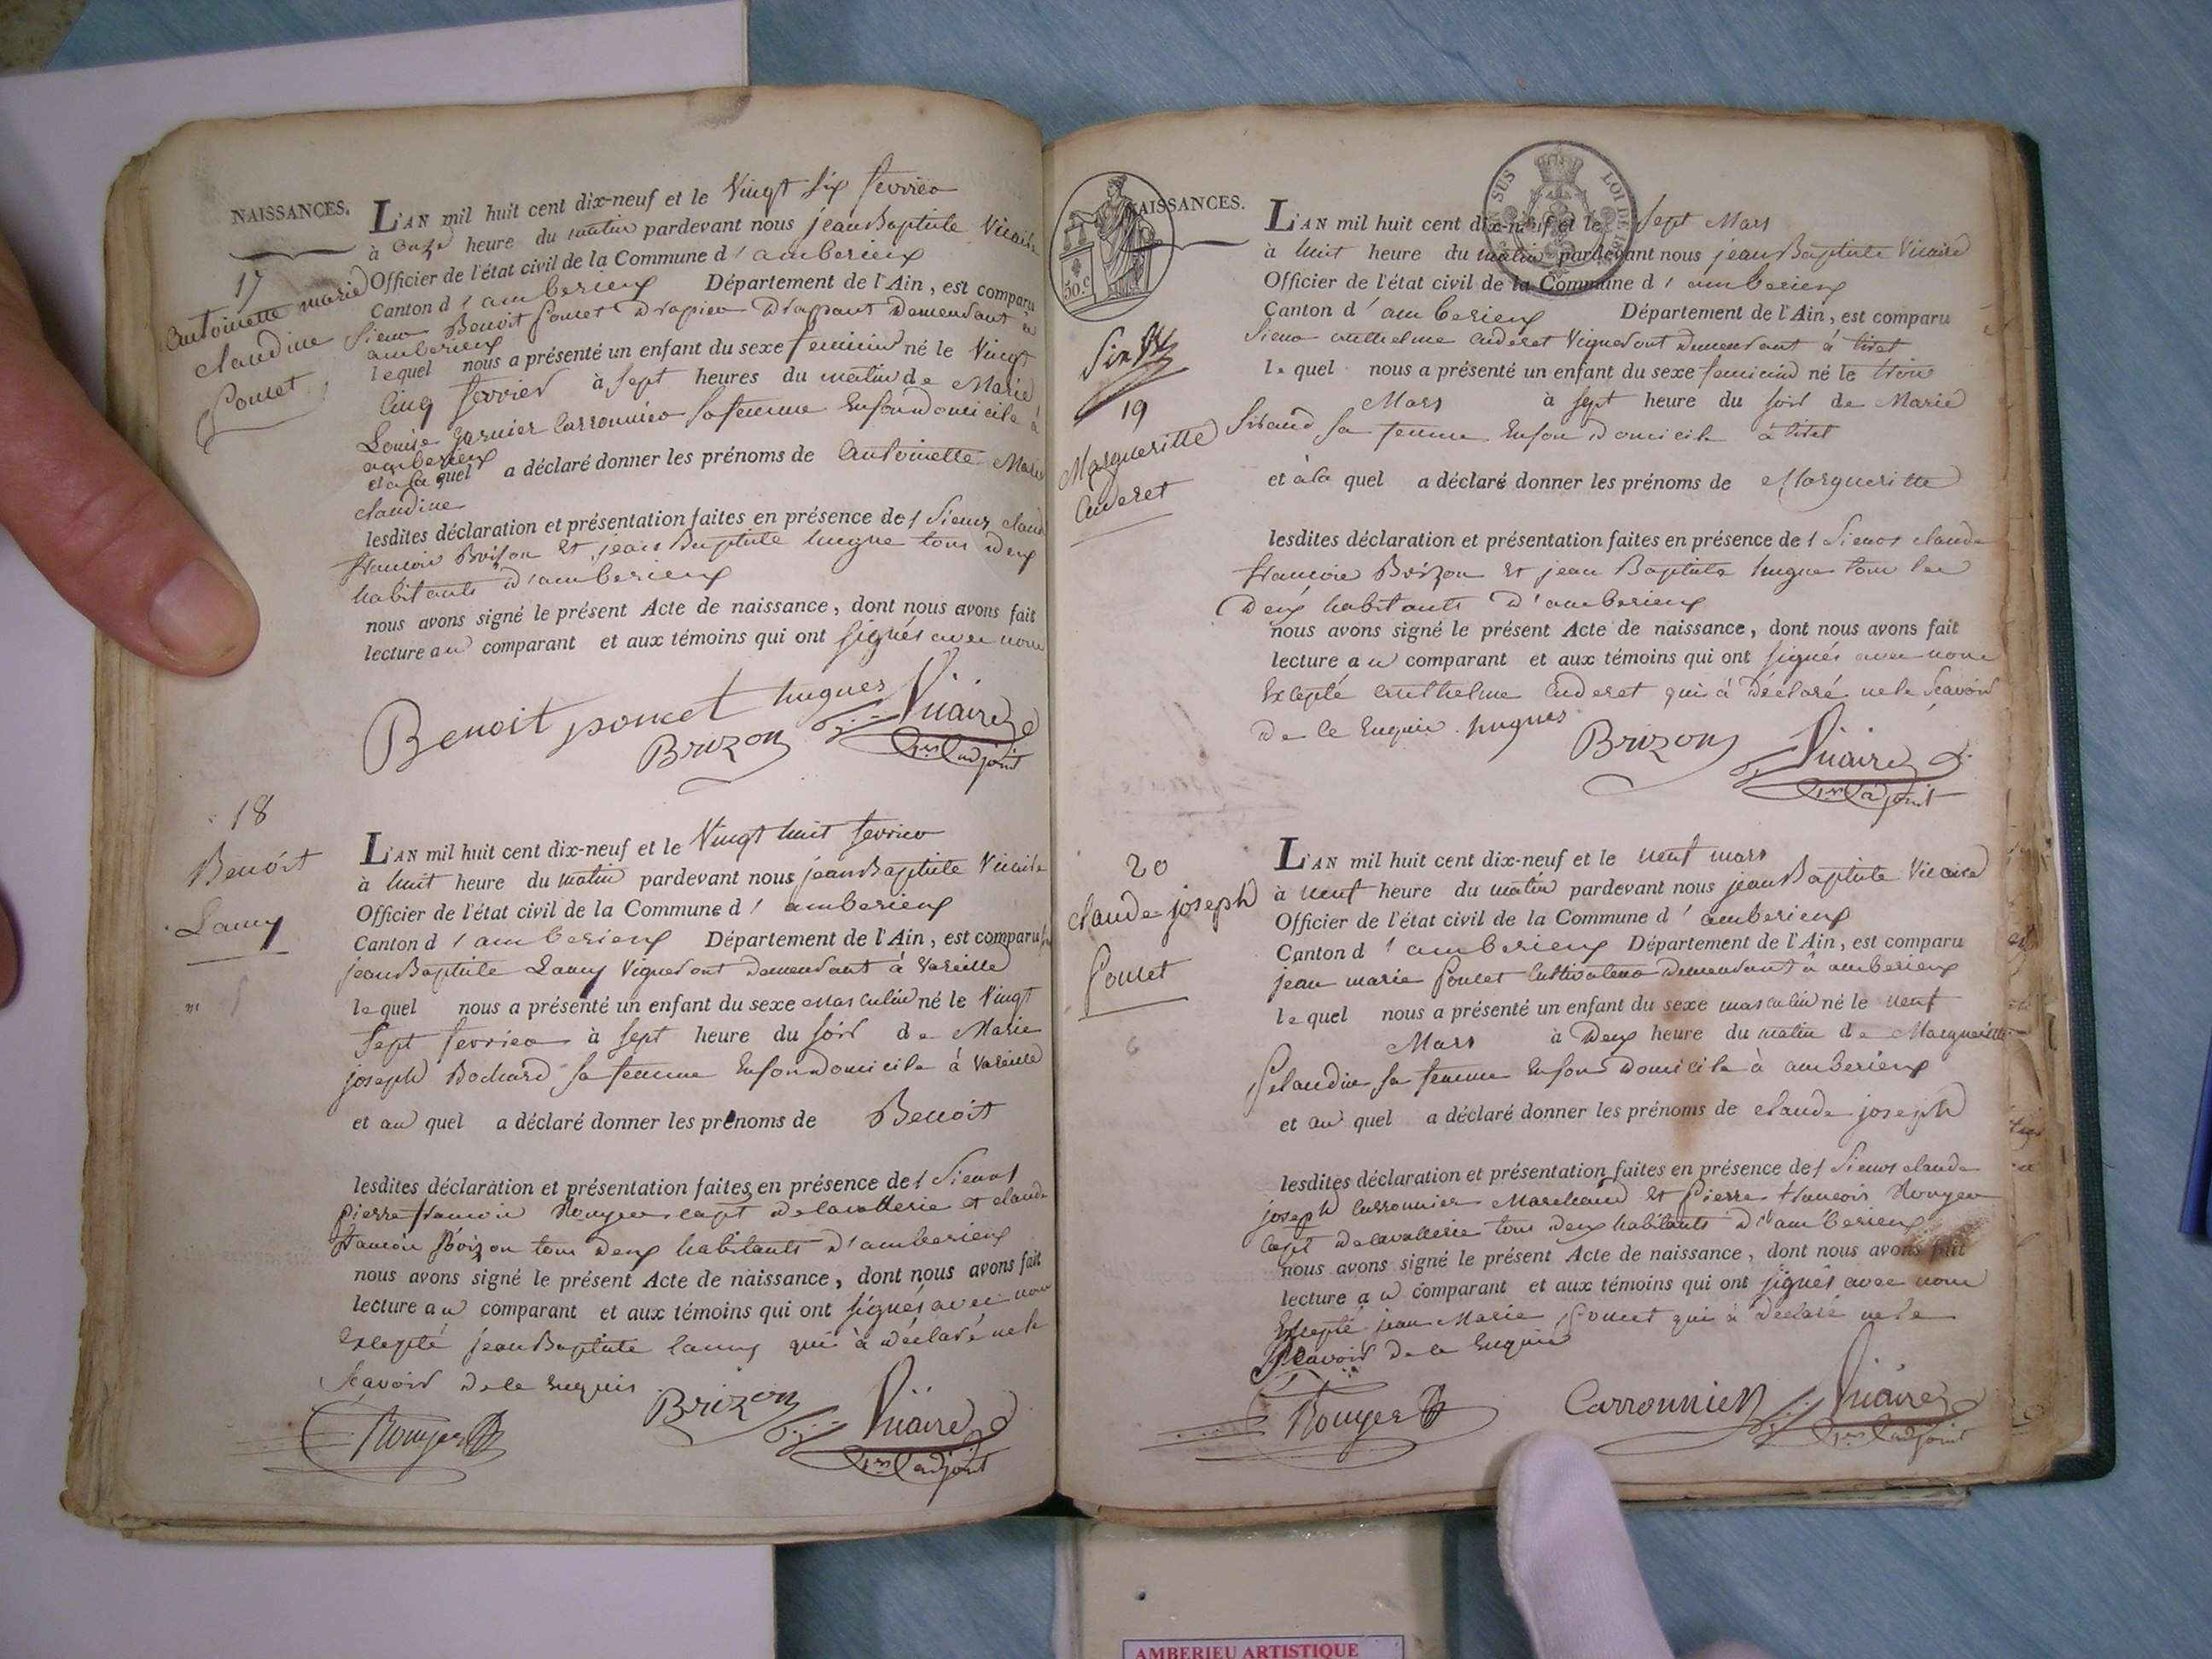 NAISSANCES.
17
Antoinette marie
claudine
Poncet
L'AN mil huit cent dix-neuf et le Vingt Six fevrier
à onze heure du matin pardevant nous jean Baptiste Vicaire
Officier de l'état civil de la Commune d'amberieux
Canton d'amberieux Département de l'Ain, est comparu
Sieur Benoit Poncet Drapier Drapant Demeurant à
amberieux
lequel nous a présenté un enfant du sexe feminin né le Vingt
Cinq fevrier à sept heures du matin de Marie
Louise garnier Carronnier sa femme En son domicile à
amberieux
et a la quel a déclaré donner les prénoms de Antoinette Marie
claudine
lesdites déclaration et présentation faites en présence des Sieurs claude
francois Brizon Et jean Baptiste hugue tous deux
habitants d'amberieux
nous avons signé le présent Acte de naissance, dont nous avons fait
lecture au comparant et aux témoins qui ont signés avec nous
Benoit poncet hugues Vicaire
Brizon 1er adjoint
18
Benoit
Lamy
L'AN mil huit cent dix-neuf et le Vingt huit fevrier
à huit heure du matin pardevant nous jean Baptiste Vicaire
Officier de l'état civil de la Commune d'amberieux
Canton d'amberieux Département de l'Ain, est comparu
jean Baptiste Lamy Vigneront Demeurant à Vareille
lequel nous a présenté un enfant du sexe Masculin né le Vingt
Sept fevrier à sept heure du soir de Marie
joseph Bochard sa femme En son Domicile à Vareille
et au quel a déclaré donner les prénoms de Benoit
lesdites déclaration et présentation faites en présence des Sieurs
pierre francois Rouyer capt de cavallerie et claude
francois Brizon tous deux habitants d'amberieux
nous avons signé le présent Acte de naissance, dont nous avons fait
lecture au comparant et aux témoins qui ont signés avec nous
Excepté jean Baptiste lamy qui à déclaré ne le
Scavoir de ce Enquis
Rouyer Brizon Vicaire
1er adjoint
NAISSANCES.
50 c
19
Margueritte
Auderet
L'AN mil huit cent dix-neuf et le Sept Mars
à huit heure du matin pardevant nous jean Baptiste Vicaire
Officier de l'état civil de la Commune d'amberieux
Canton d'amberieux Département de l'Ain, est comparu
Sieur anthelme Auderet Vigneront Demeurant à tiret
lequel nous a présenté un enfant du sexe feminin né le trois
Mars à sept heure du soir de Marie
Sirand sa femme En son Domicile à tiret
et à la quel a déclaré donner les prénoms de Margueritte
lesdites déclaration et présentation faites en présence des Sieurs claude
francois Brizon Et jean Baptiste hugue tous les
Deux habitants d'amberieux
nous avons signé le présent Acte de naissance, dont nous avons fait
lecture au comparant et aux témoins qui ont signés avec nous
Excepté anthelme Auderet qui à déclaré ne le Scavoir
de ce Enquis hugues
Brizon Vicaire
1er adjoint
20
claude joseph
Poncet
L'AN mil huit cent dix-neuf et le neuf mars
à neuf heure du matin pardevant nous jean Baptiste Vicaire
Officier de l'état civil de la Commune d'amberieux
Canton d'amberieux Département de l'Ain, est comparu
jean marie Poncet Cultivateur Demeurant à amberieux
lequel nous a présenté un enfant du sexe masculin né le neuf
Mars à Deux heure du matin de Margueritte
sa femme En son Domicile à amberieux
et au quel a déclaré donner les prénoms de claude joseph
lesdites déclaration et présentation faites en présence des Sieurs claude
joseph Carronnier Marchand Et Pierre francois Rouyer
capt de cavallerie tous deux habitants d'amberieux
nous avons signé le présent Acte de naissance, dont nous avons fait
lecture au comparant et aux témoins qui ont signés avec nous
Excepté jean Marie Poncet qui à déclaré ne le
Scavoir de ce Enquis
Rouyer Carronnier Vicaire
1er adjoint
AMBERIEU ARTISTIQUE